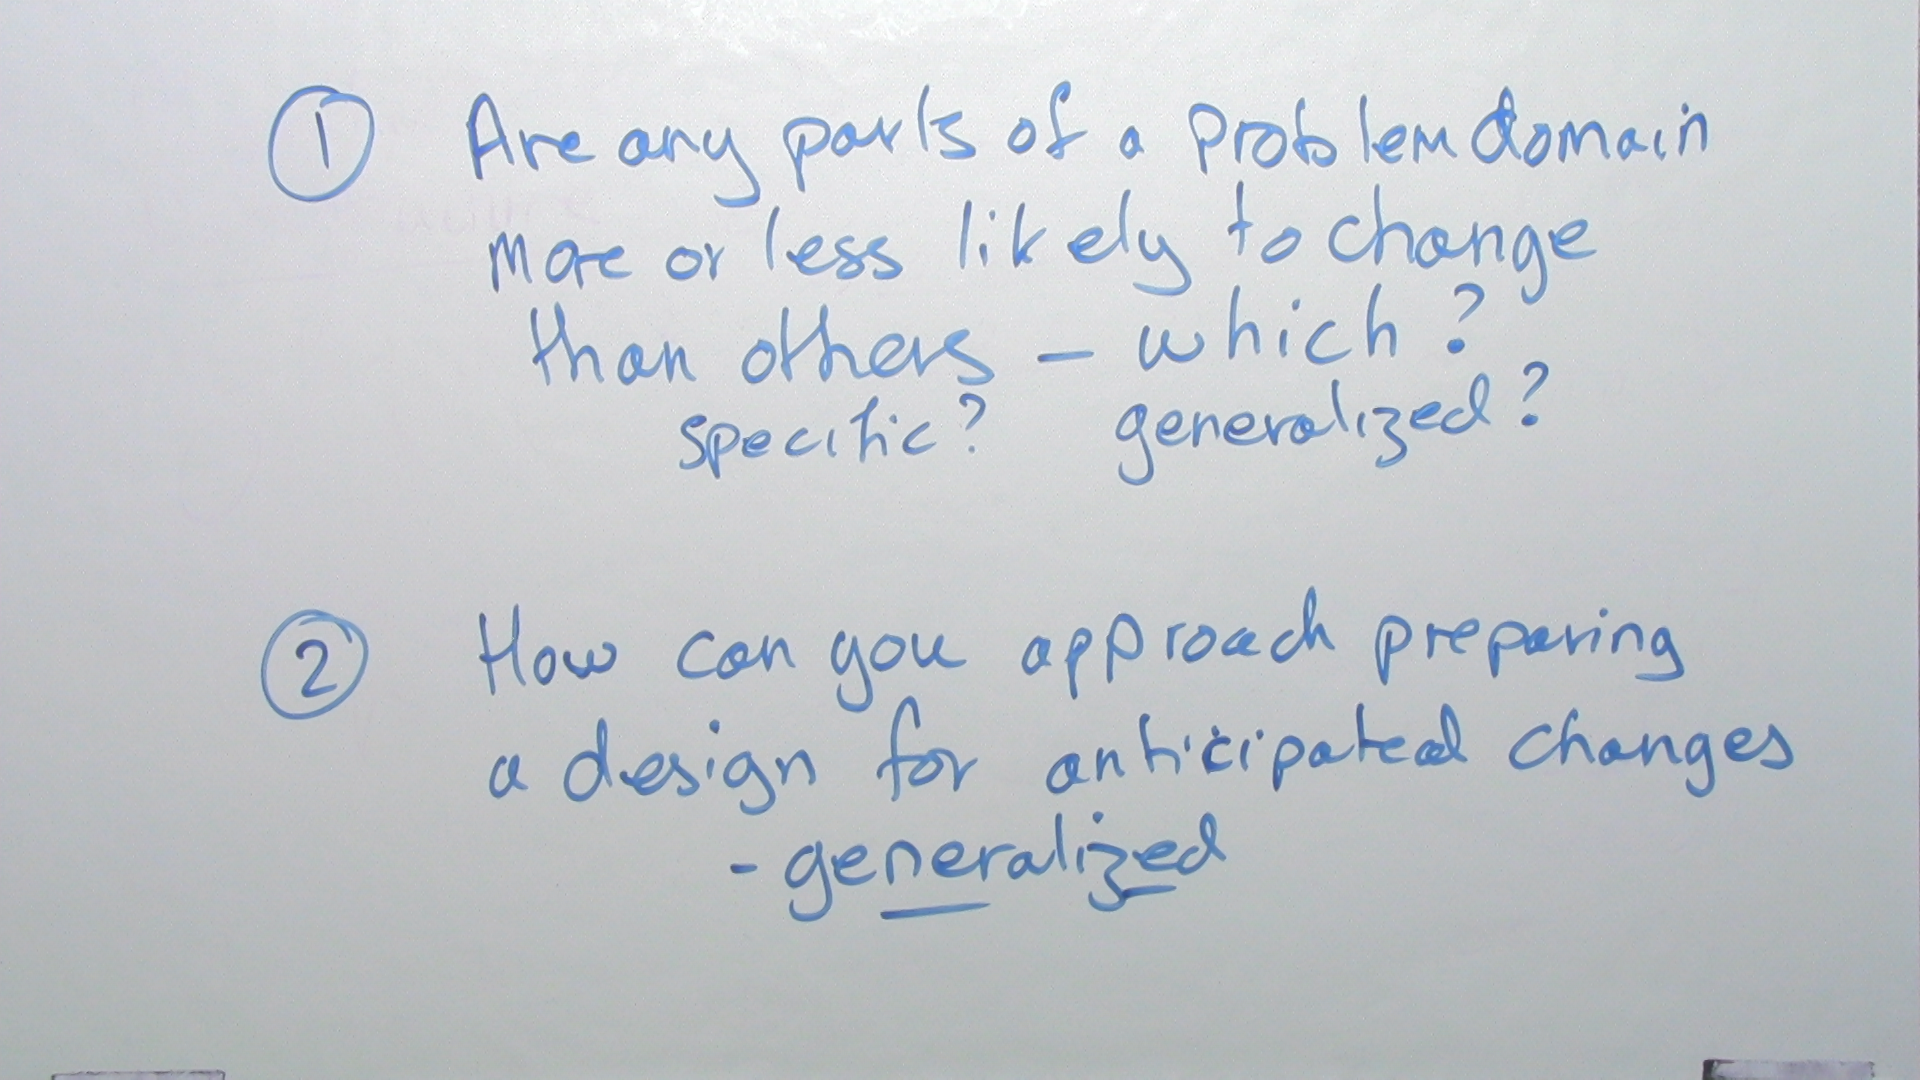 ① Are any parts of a problem domain
more or less likely to change
than others - which?
specific? generalized?
② How can you approach preparing
a design for anticipated changes
- generalized